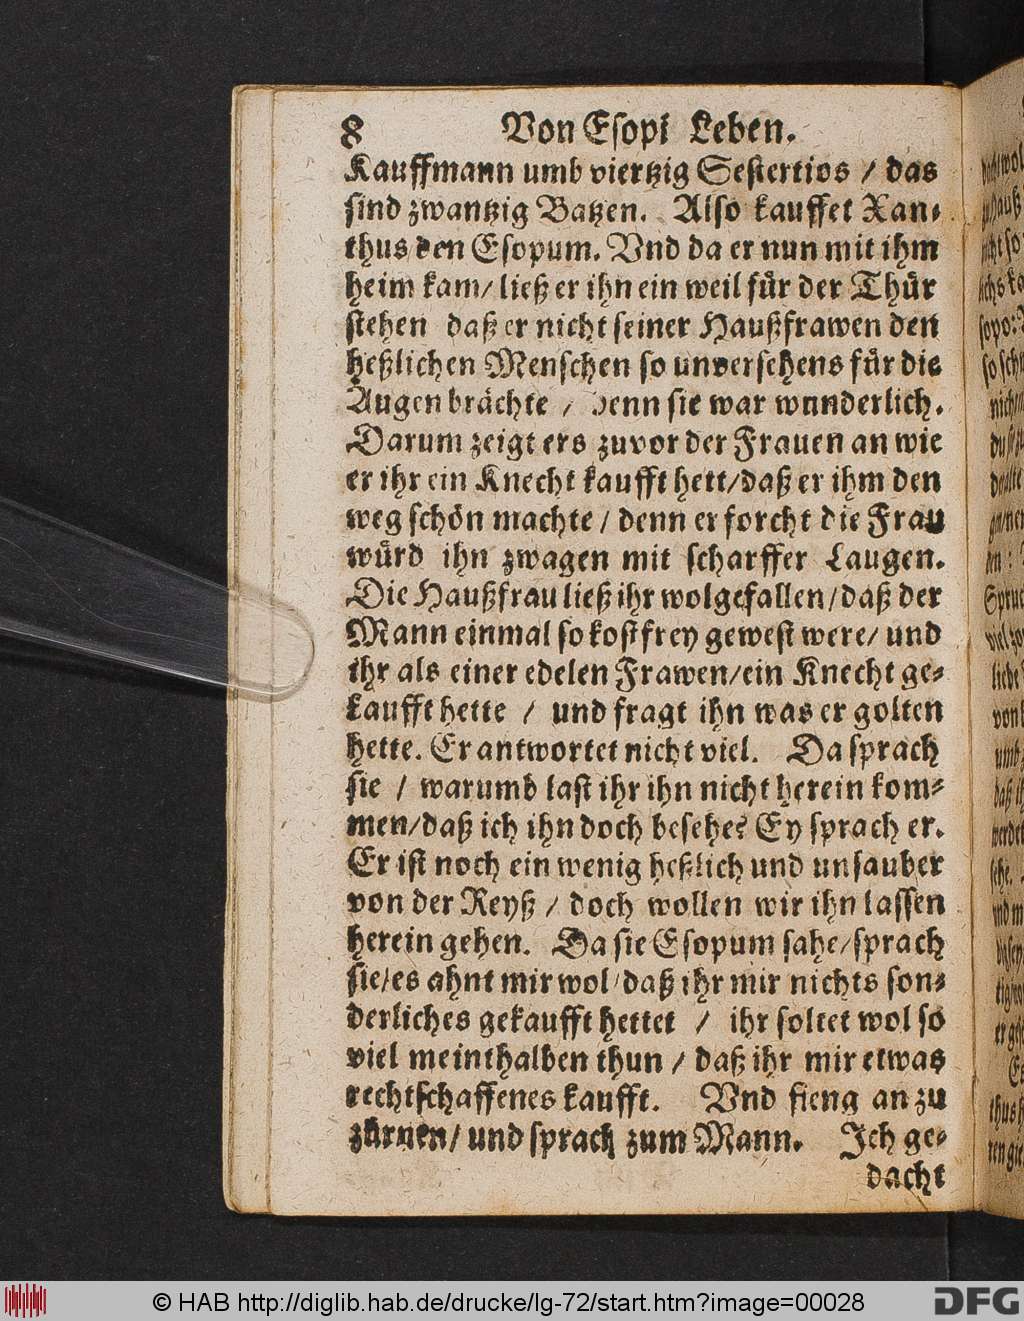 8 Von Esopi Leben.
Kauffmann umb viertzig Sestertios / das
sind zwantzig Batzen. Also kauffet Xan-
thus den Esopum. Vnd da er nun mit ihm
heim kam / ließ er ihn ein weil fuͤr der Thuͤr
stehen daß er nicht seiner Haußfrawen den
heßlichen Menschen so unversehens fuͤr die
Augen braͤchte / denn sie war wunderlich.
Darum zeigt ers zuvor der Frauen an wie
er ihr ein Knecht kaufft hett / daß er ihm den
weg schoͤn machte / denn er forcht die Frau
wuͤrd ihn zwagen mit scharffer Laugen.
Die Haußfrau ließ ihr wolgefallen / daß der
Mann einmal so kostfrey gewest were / und
ihr als einer edelen Frawen / ein Knecht ge-
kaufft hette / und fragt ihn was er golten
hette. Er antwortet nicht viel. Da sprach
sie / warumb last ihr ihn nicht herein kom-
men / daß ich ihn doch besehe? Ey sprach er.
Er ist noch ein wenig heßlich und unsauber
von der Reyß / doch wollen wir ihn lassen
herein gehen. Da sie Esopum sahe / sprach
sie / es ahnt mir wol / daß ihr mir nichts son-
derliches gekaufft hettet / ihr soltet wol so
viel meinthalben thun / daß ihr mir etwas
rechtschaffenes kaufft. Vnd fieng an zu
zuͤrnen / und sprach zum Mann. Ich ge-
dacht
© HAB http://diglib.hab.de/drucke/lg-72/start.htm?image=00028
DFG